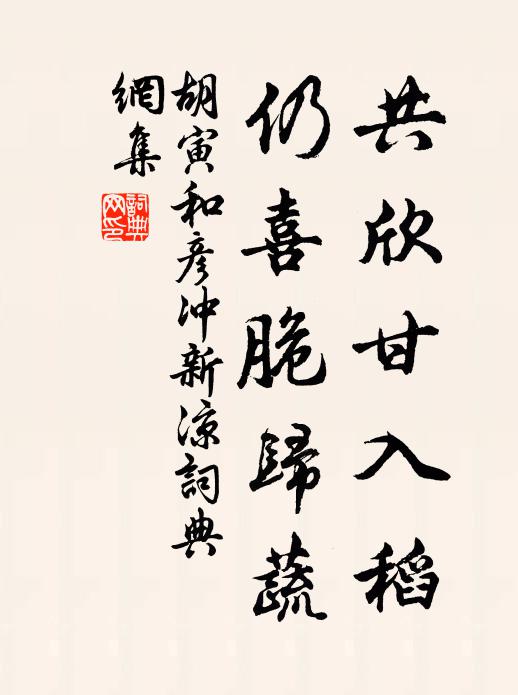 共欣甘入稻
仍喜脆歸蔬
胡寅和彥沖新涼詞典
網集
詞典
网印